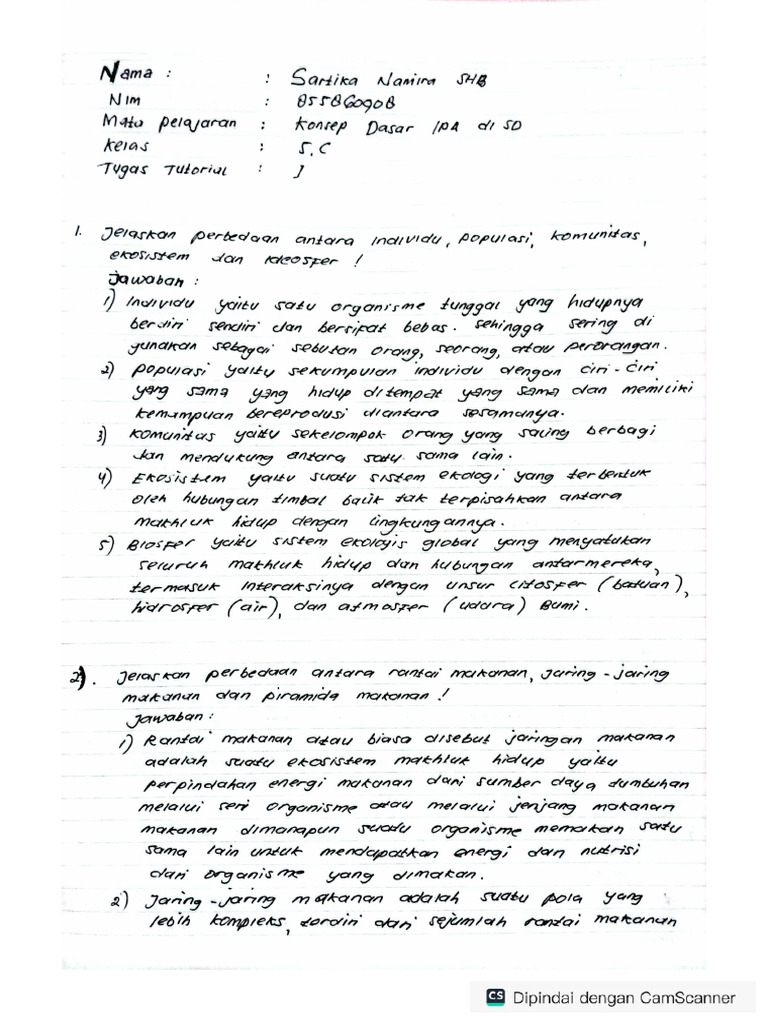 Nama : : Sartika Namira SHB
Nim : 855860908
Mata Pelajaran : Konsep Dasar IPA di SD
Kelas : 5.C
Tugas Tutorial : 1
1. Jelaskan perbedaan antara individu, populasi, komunitas,
ekosistem dan ideosfer !
Jawaban :
1) Individu yaitu satu organisme tunggal yang hidupnya
berdiri sendiri dan bersipat bebas. sehingga sering di
gunakan sebagai sebutan orang, seorang, atau perorangan.
2) Populasi yaitu sekumpulan individu dengan ciri-ciri
yang sama yang hidup ditempat yang sama dan memiliki
kemampuan bereprodusi diantara sesamanya.
3) Komunitas yaitu sekelompok orang yang saling berbagi
dan mendukung antara satu sama lain.
4) Ekosistem yaitu suatu sistem ekologi yang terbentuk
oleh hubungan timbal balik tak terpisahkan antara
makhluk hidup dengan lingkungannya.
5) Biosfer yaitu sistem ekologis global yang menyatukan
seluruh makhluk hidup dan hubungan antarmereka,
termasuk interaksinya dengan unsur litosfer (batuan),
hidrosfer (air), dan atmosfer (udara) Bumi.
2). Jelaskan perbedaan antara rantai makanan, jaring-jaring
makanan dan piramida makanan !
Jawaban :
1) Rantai makanan atau biasa disebut jaringan makanan
adalah suatu ekosistem makhluk hidup yaitu
perpindahan energi makanan dari sumber daya tumbuhan
melalui seri organisme atau melalui jenjang makanan
makanan dimanapun suatu organisme memakan satu
sama lain untuk mendapatkan energi dan nutrisi
dari organisme yang dimakan.
2) Jaring-jaring makanan adalah suatu pola yang
lebih kompleks, terdiri dari sejumlah rantai makanan
CS Dipindai dengan CamScanner